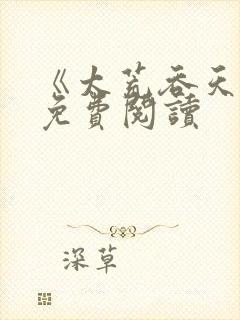 《大荒吞天
免費閱讀
深草